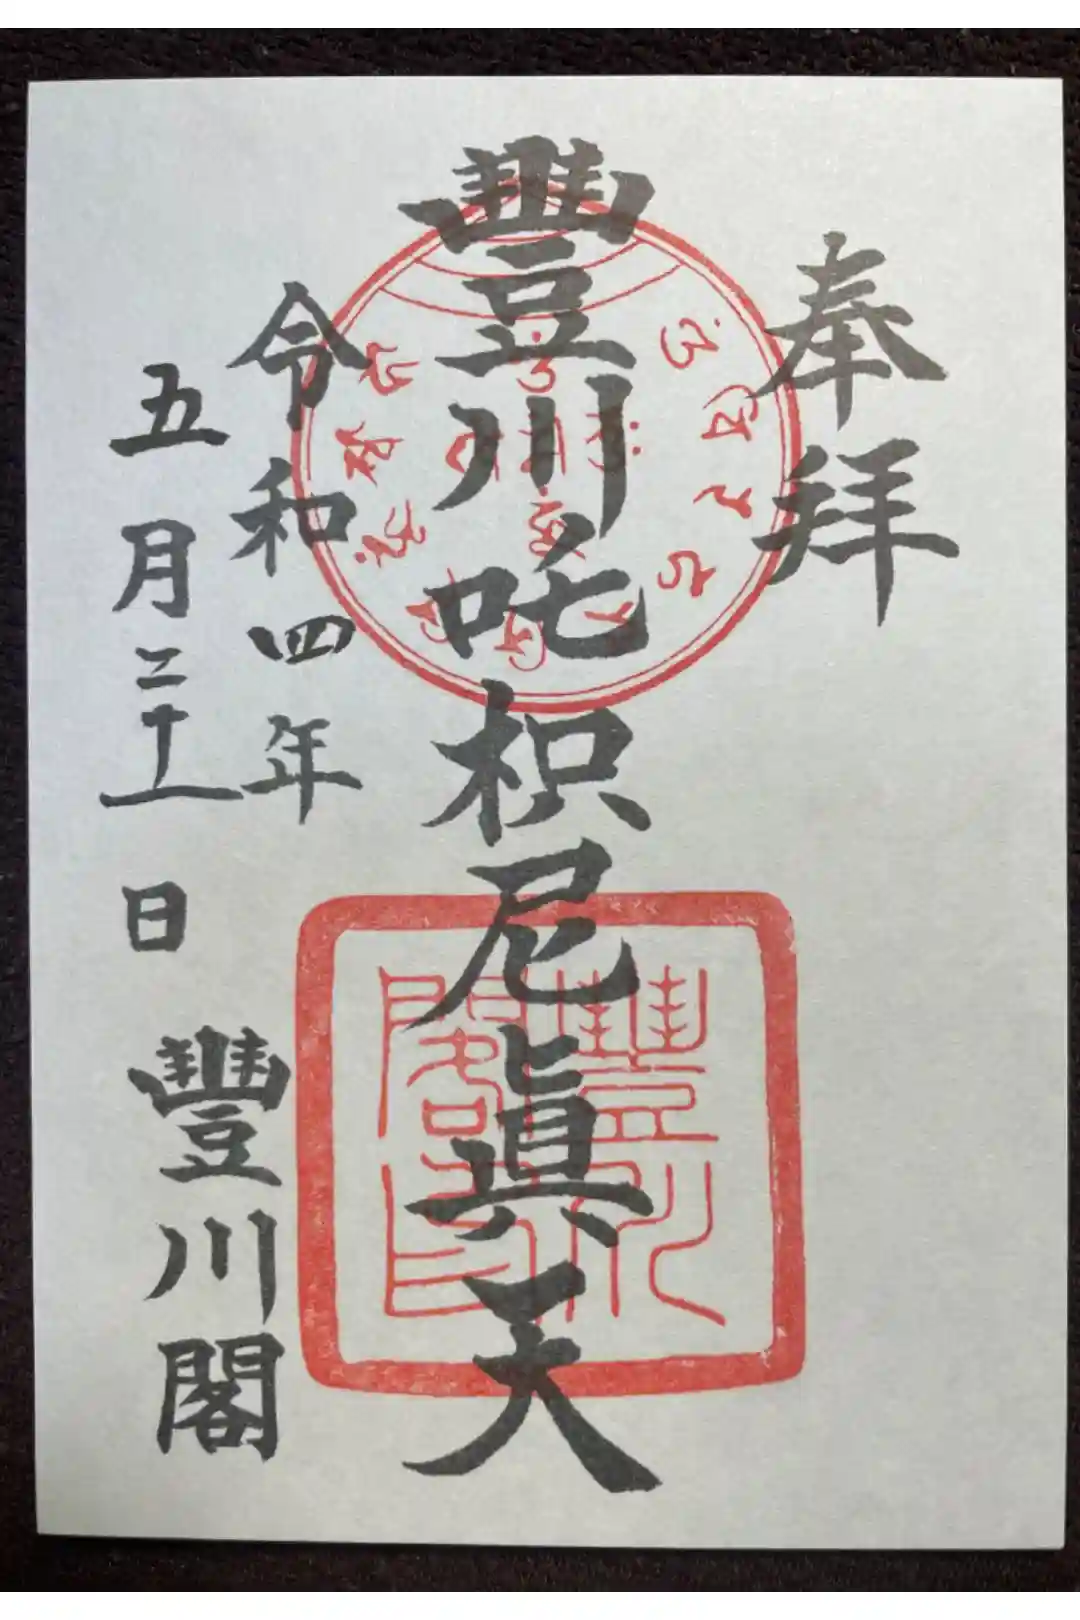 奉拝
豐川吒枳尼眞天
令和四年
五月二十一日
豐川閣
豐川閣印